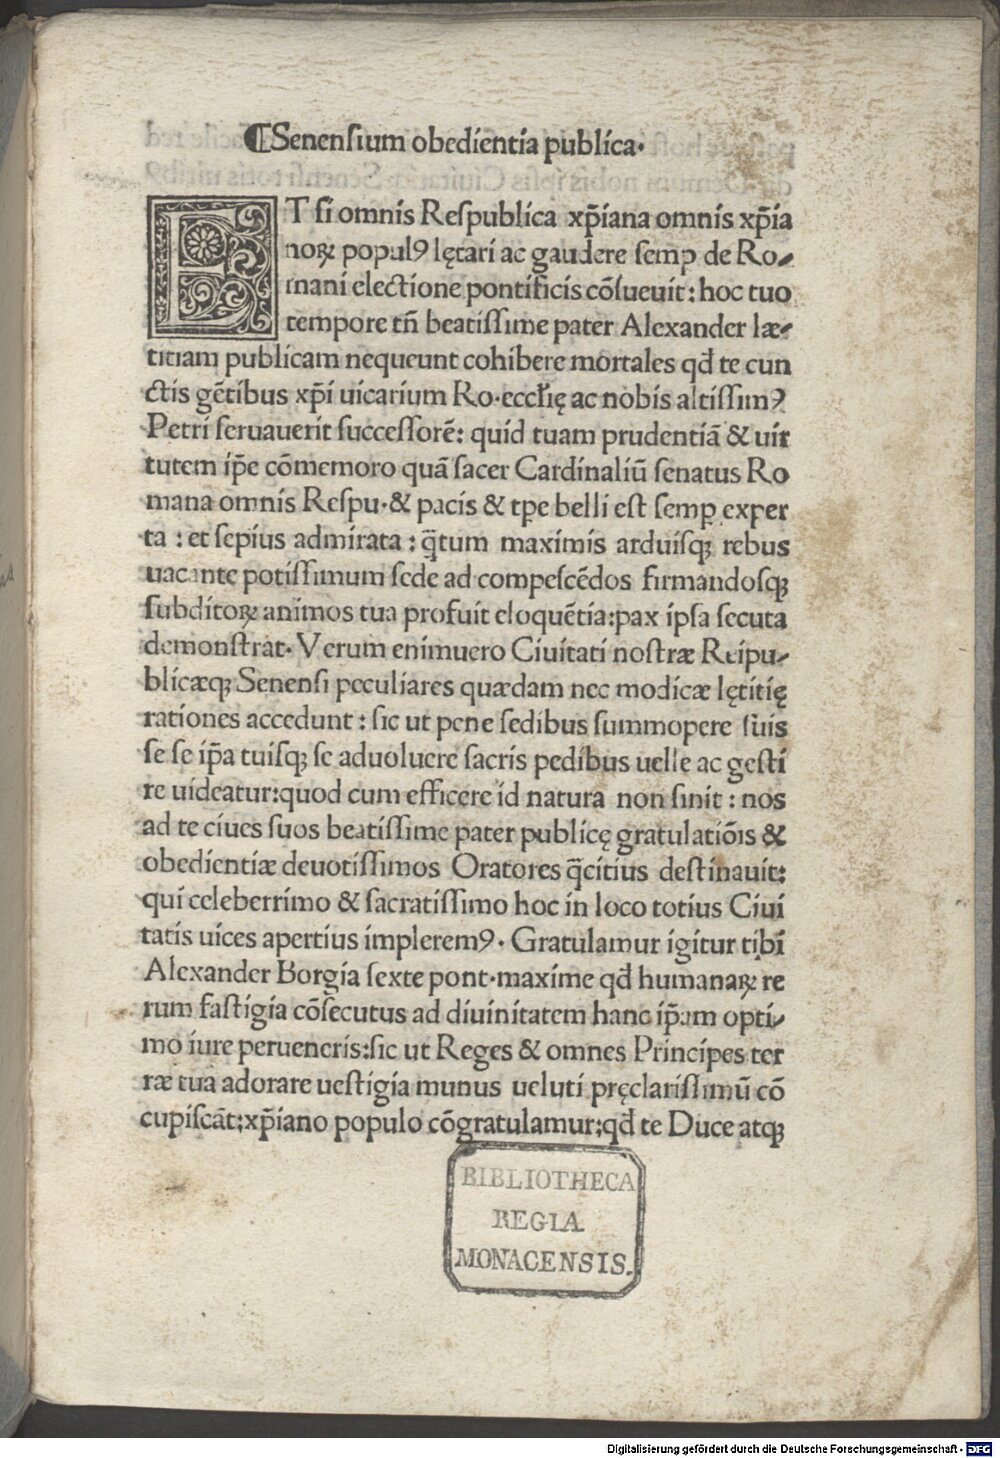 ¶Senenſium obedientia publica·
ET ſi omnis Reſpublica xp̄iana omnis xp̄ia
noꝝ popul9 lętari ac gaudere ſemꝑ de Ro-
mani electione pontificis cōſueuit: hoc tuo
tempore tn̄ beatiſſime pater Alexander læ-
titiam publicam nequeunt cohibere mortales qđ te cun
ctis gētibus xp̄i uicarium Ro·eccƚię ac nobis altiſſim9
Petri ſeruauerit ſucceſſorē: quid tuam prudentiā & uir
tutem ip̄e cōmemoro quā ſacer Cardinaliū ſenatus Ro
mana omnis Reſpu·& pacis & tꝑe belli eſt ſemꝑ exper
ta : et ſepius admirata : q̄tum maximis arduiſqꝫ rebus
uacante potiſſimum ſede ad compeſcēdos firmandoſqꝫ
ſubditoꝝ animos tua profuit eloquētia:pax ipſa ſecuta
demonſtrat· Verum enimuero Ciuitati noſtræ Reipu-
blicæqꝫ Senenſi peculiares quædam nec modicæ lętitię
rationes accedunt : ſic ut pene ſedibus ſummopere ſuis
ſe ſe ip̄a tuiſqꝫ ſe aduoluere ſacris pedibus uelle ac geſti
re uideatur:quod cum efficere id natura non ſinit : nos
ad te ciues ſuos beatiſſime pater publicę gratulatiōis &
obedientiæ deuotiſſimos Oratores q̄citius deſtinauit:
qui celeberrimo & ſacratiſſimo hoc in loco totius Ciui
tatis uices apertius implerem9· Gratulamur igitur tibi
Alexander Borgia ſexte pont·maxime qđ humanaꝝ re
rum faſtigia cōſecutus ad diuinitatem hanc ip̄am opti-
mo iure perueneris:ſic ut Reges & omnes Principes ter
ræ tua adorare ueſtigia munus ueluti pręclariſſimū cō
cupiſcāt:xp̄iano populo cōgratulamur:qđ te Duce atqꝫ
BIBLIOTHECA
REGIA
MONACENSIS.
Digitalisierung gefördert durch die Deutsche Forschungsgemeinschaft - DFG